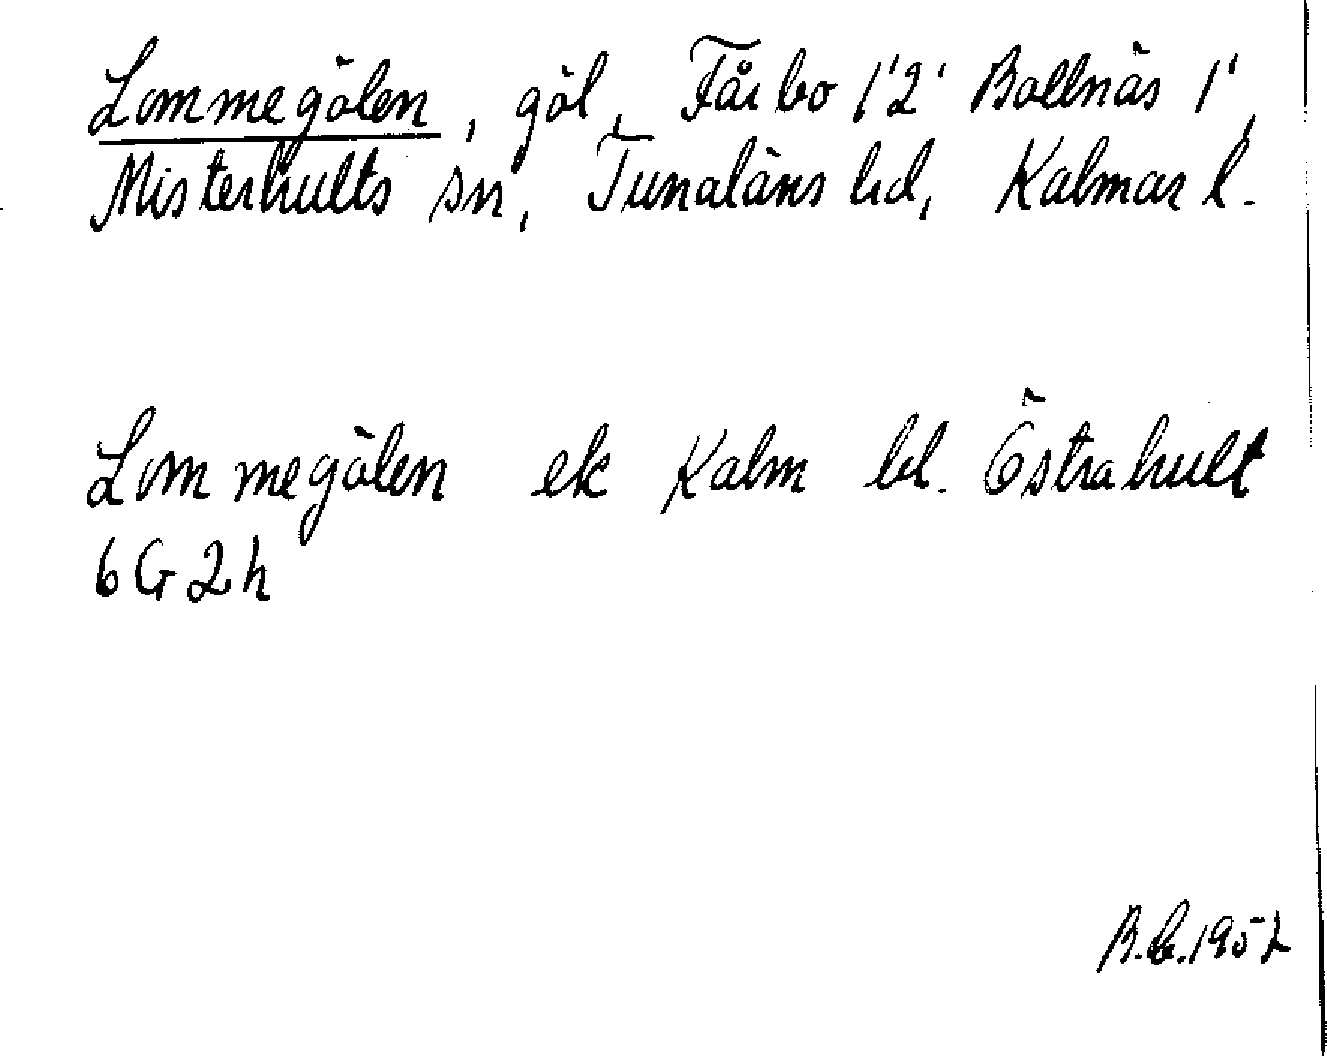 Lommegölen, göl, Fårbo 1'2' Bollnäs 1',
Misterhults sn, Tunaläns hd, Kalmar l.
Lommegölen ek Kalm bl. Östrahult
6G2h
1952